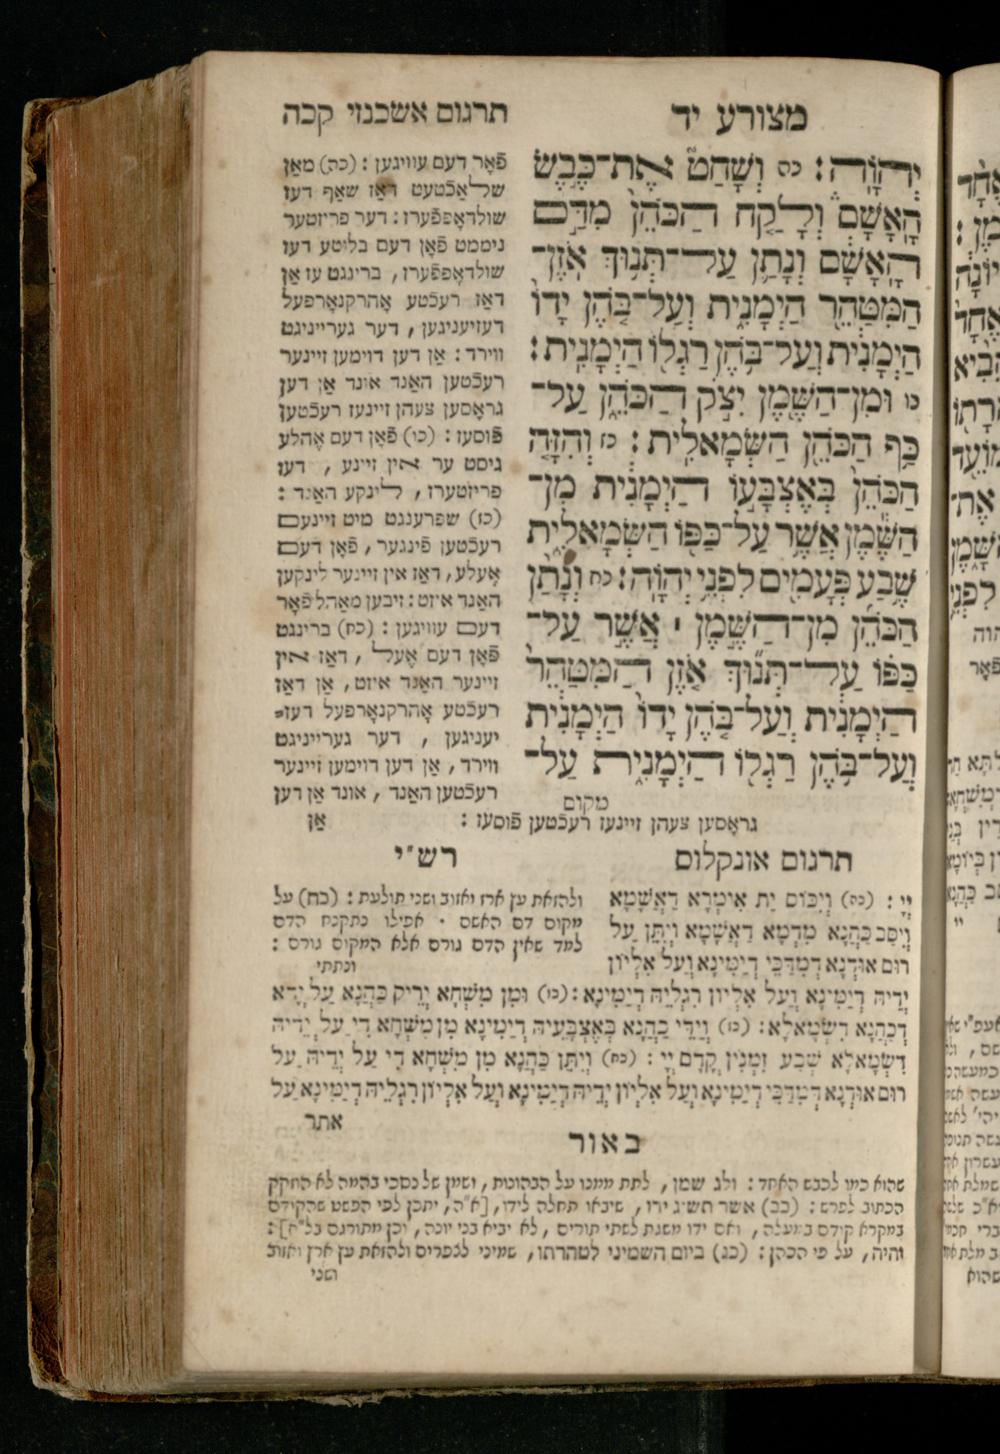 מצורע יד
תרגום אשכנזי קכה
יְהוָֹה: כה וְשָׁחַט֮ אֶת־כֶּ֣בֶשׂ
הָאָשָׁם֒ וְלָקַ֤ח הַכֹּהֵן֙ מִדַּ֣ם
הָאָשָׁ֔ם וְנָתַ֛ן עַל־תְּנ֥וּךְ אֹֽזֶן־
הַמִּטַּהֵ֖ר הַיְמָנִ֑ית וְעַל־בֹּ֤הֶן יָדוֹ֙
הַיְמָנִ֔ית וְעַל־בֹּ֥הֶן רַגְל֖וֹ הַיְמָנִֽית:
כו וּמִן־הַשֶּׁ֖מֶן יִצֹ֣ק הַכֹּהֵ֑ן עַל־
כַּ֥ף הַכֹּהֵ֖ן הַשְּׂמָאלִֽית: כז וְהִזָּ֤ה
הַכֹּהֵן֙ בְּאֶצְבָּע֣וֹ הַיְמָנִ֔ית מִן־
הַשֶּׁ֕מֶן אֲשֶׁ֥ר עַל־כַּפּ֖וֹ הַשְּׂמָאלִ֑ית
שֶׁ֥בַע פְּעָמִ֖ים לִפְנֵ֥י יְהוָֹֽה: כח וְנָתַ֨ן
הַכֹּהֵ֜ן מִן־הַשֶּׁ֣מֶן ׀ אֲשֶׁ֣ר עַל־
כַּפּ֗וֹ עַל־תְּנ֞וּךְ אֹ֤זֶן הַמִּטַּהֵר֙
הַיְמָנִ֔ית וְעַל־בֹּ֤הֶן יָדוֹ֙ הַיְמָנִ֔ית
וְעַל־בֹּ֥הֶן רַגְל֖וֹ הַיְמָנִ֑ית עַל־
מקום
פֿאָר דעם עוויגען: (כה) מאַן
שלאַכֿטעט דאַז שאַף דעז
שולדאָפּפֿערז: דער פריזטער
ניממט פֿאָן דעם בלוטע דעז
שולדאָפּפֿערז, ברינגט עז אַן
דאַז רעכֿטע אָהרקנאָרפעל
דעזיעניגען, דער גערייניגט
ווירד: אַן דען דוימען זיינער
רעכֿטען האַנד אונד אַן דען
גראָסען צעהן זיינעז רעכֿטען
פֿוסעז: (כו) פֿאָן דעם אָהלע
גיסט ער אין זיינע, דעז
פריזטערז, לינקע האַנד:
(כז) שפרענגט מיט זיינעם
רעכֿטען פֿינגער, פֿאָן דעם
אָעלע, דאַז אין זיינער לינקען
האַנד איזט: זיבען מאַהל פֿאָר
דעם עוויגען: (כח) ברינגט
פֿאָן דעם אָעל, דאַז אין
זיינער האַנד איזט, אַן דאַז
רעכֿטע אָהרקנאָרפעל דעז=
יעניגען, דער גערייניגט
ווירד, אַן דען דוימען זיינער
רעכֿטען האַנד, אונד אַן דען
גראָסען צעהן זיינעז רעכֿטען פֿוסעז:
אַן
תרגום אונקלוס
יְיָ: (כה) וְיִכּוֹם יַת אִימְרָא דַאֲשָׁמָא
וְיִסַּב כַּהֲנָא מִדְּמָא דַאֲשָׁמָא וְיִתֵּן עַל
רוּם אוּדְנָא דְמִדַּכֵּי דְיַמִּינָא וְעַל אִלְיוֹן
יְדֵיהּ דְיַמִּינָא וְעַל אִלְיוֹן רִגְלֵיהּ דְיַמִּינָא: (כו) וּמִן מִשְׁחָא יְרִיק כַּהֲנָא עַל יְדָא
דְכַהֲנָא דִשְׂמָאלָא: (כז) וְיַדֵּי כַהֲנָא בְּאֶצְבָּעֵיהּ דְיַמִּינָא מִן מִשְׁחָא דִי עַל יְדֵיהּ
דִשְׂמָאלָא שְׁבַע זִמְנִין קֳדָם יְיָ: (כח) וְיִתֵּן כַּהֲנָא מִן מִשְׁחָא דִי עַל יְדֵיהּ עַל
רוּם אוּדְנָא דְמִדַּכֵּי דְיַמִּינָא וְעַל אִלְיוֹן יְדֵיהּ דְיַמִּינָא וְעַל אִלְיוֹן רִגְלֵיהּ דְיַמִּינָא עַל
אתר
רש"י
ולהזאת עץ ארז ואזוב ושני תולעת: (כח) על
מקום דם האשם. אפילו נתקנח הדם
למד שאין הדם גורם אלא המקום גורם:
ונתתי
באור
שהוא כמו לכבש האחד: ולג שמן, לתת ממנו על הבהונות, ושמן של נסכי בהמה לא הוזקק
הכתוב לפרש: (כב) אשר תשיג ידו, שיביאו תחלה לידו, [א"ה, יתכן לפי הפשט שהקודם
במקרא קודם במעלה, ואם ידו משגת לשתי תורים, לא יביא בני יונה, וכן מתורגם בל"א]:
והיה, על פי הכהן: (כג) ביום השמיני לטהרתו, שמיני לצפרים ולהזאת עץ ארז ואזוב
ושני